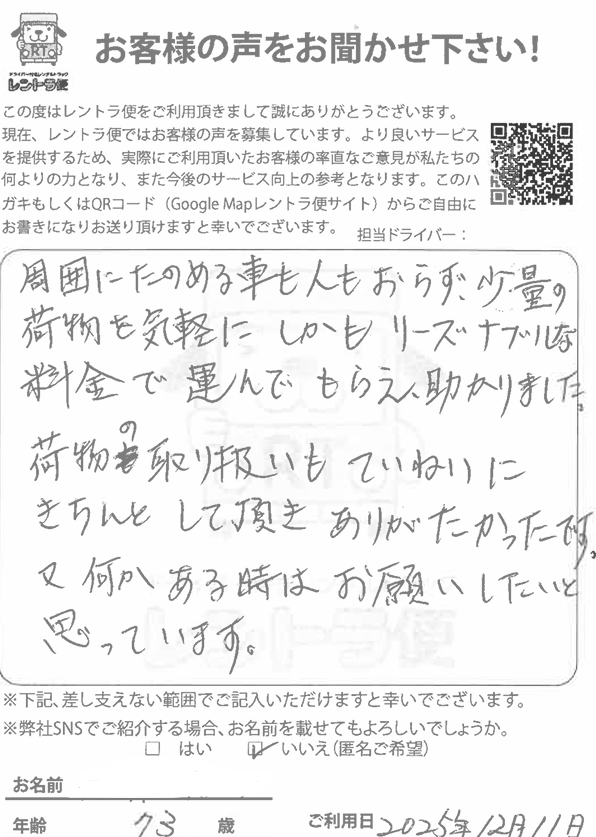 RT
ドライバー付きレンタルトラック
レントラ便
お客様の声をお聞かせ下さい!
この度はレントラ便をご利用頂きまして誠にありがとうございます。
現在、レントラ便ではお客様の声を募集しています。より良いサービス
を提供するため、実際にご利用頂いたお客様の率直なご意見が私たちの
何よりの力となり、また今後のサービス向上の参考となります。このハ
ガキもしくはQRコード(Google Mapレントラ便サイト)からご自由に
お書きになりお送り頂けますと幸いでございます。
担当ドライバー:
周囲にたのめる車も人もおらず、少量の
荷物を気軽に しかも リーズナブルな
料金で 運んで もらえ、助かりました。
荷物の取り扱いも ていねいに
きちんと して頂き ありがたかったです。
又 何か ある時は お願いしたいと
思っています。
RT
レントラ便
※下記、差し支えない範囲でご記入いただけますと幸いでございます。
※弊社SNSでご紹介する場合、お名前を載せてもよろしいでしょうか。
□ はい ☑ いいえ(匿名ご希望)
お名前
年齢 73 歳 ご利用日 2025年12月11日